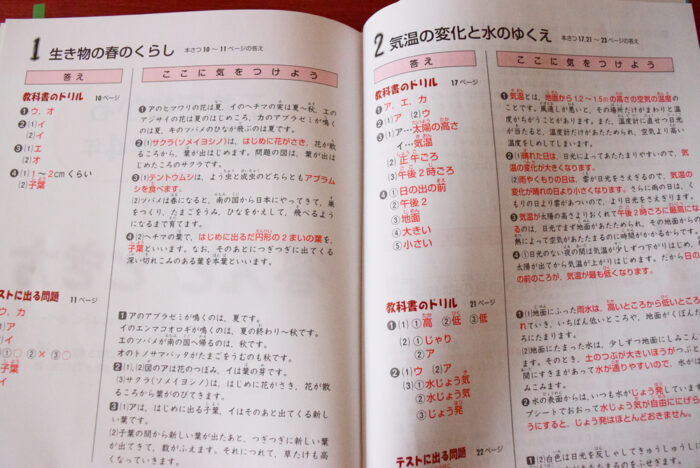 1 生き物の春のくらし 本さつ10〜11ページの答え
答え
ここに気をつけよう
教科書のドリル 10ページ
❶ ウ, オ
❷ (1)イ
(2)イ
❸ (1)エ
(2)オ
❹ (1)1〜2cmくらい
(2)子葉
❶アのヒマワリの花は夏, イのヘチマの実は夏〜秋, エの
アジサイの花は夏のはじめころ, カのアブラゼミが鳴く
のは夏, キのツバメのひなが飛ぶのは夏です。
❷(1)サクラ(ソメイヨシノ)は, はじめに花がさき, 花が散
るころから, 葉が出はじめます。問題の図は, 葉が出は
じめたころのサクラです。
❸(1)テントウムシは, よう虫と成虫のどちらともアブラム
シを食べます。
(2)ツバメは春になると, 南の国から日本にやってきて, 巣
をつくり, たまごをうみ, ひなをかえして, 飛べるよう
になるまで育てます。
❹(2)ヘチマの葉で, はじめに出るだ円形の2まいの葉を,
子葉といいます。なお, そのあとにつぎつぎに出てくる
深い切れこみのある葉を本葉といいます。
テストに出る問題 11ページ
ウ, カ
(1)ア
(2)イ
①○ ②× ③○
イ
1アのアブラゼミが鳴くのは, 夏です。
イのエンマコオロギが鳴くのは, 夏の終わり〜秋です。
エのツバメが南の国へ帰るのは, 秋です。
オのトノサマバッタがたまごをうむのも秋です。
2(1), (2)図のアは花のつぼみ, イは葉の芽です。
(3)サクラ(ソメイヨシノ)は, はじめに花がさき, 花が散
るころから葉がのびてきます。
3(1)アは, はじめに出る子葉, イはそのあと出てくる新し
い葉です。
(2)子葉の間から新しい葉が出たあと, つぎつぎに新しい葉
が出てきて, 数がふえます。それにつれて, 草たけも高
くなっていきます。
2 気温の変化と水のゆくえ 本さつ17,21〜23ページの答え
答え
ここに気をつけよう
教科書のドリル 17ページ
❶ ア, エ, カ
❷ (1)ア (2)ウ
❸ (1)ア…太陽の高さ
イ…気温
(2)正午ごろ
(3)午後2時ごろ
❹ ①日の出の前
②午後2時
③地面
④大きい
⑤小さい
❶気温とは, 地面から1.2〜1.5mの高さの空気の温度の
ことです。風通しが悪いと, その場所だけがまわりと温
度がちがうことがあります。また, 温度計に直せつ日光
が当たると, 温度計だけがあたためられ, 空気より高い
温度をしめしてしまいます。
❷(1)晴れた日は, 日光によってあたたまりやすいので, 気
温の変化が大きくなります。
(2)雨やくもりの日は, 雲が日光をさえぎるので, 気温の
変化が晴れの日より小さくなります。さらに雨の日は, く
もりの日より雲があついので, より日光をさえぎります。
❸気温が太陽の高さよりおくれて午後2時ごろに最高にな
るのは, 日光でまず地面があたためられ, その地面からの
熱によって空気があたたまるのに時間がかかるからです。
❹①日光のない夜の間は気温が少しずつ下がりはじめ,
太陽が出てから気温が上がりはじめます。だから日の
の前のころが, 気温が最も低くなります。
教科書のドリル 21ページ
❶ (1)①高 ②低 ③低
(2)①じゃり
②ア
❷ (1)ウ (2)ア
(3)①水じょう気
②水じょう気
③じょう発
❶(1)地面にふった雨水は, 高いところから低いところ
れていき, いちばん低いところや, 地面がくぼんだ
ろにたまります。
(2)地面にたまった水は, 少しずつ地面にしみこんで
ます。そのとき, 土のつぶが大きいほうがつぶと
間にすきまがあって水が通りやすいので, 水がは
みこみます。
❷水の表面からは, いつも水がじょう発しています
プシートでおおって水じょう気が自由ににげら
うにすると, じょう発はほとんどおきません。
テストに出る問題 22ページ
1(2)白色は日光を反しゃしてきゅうしゅうしに